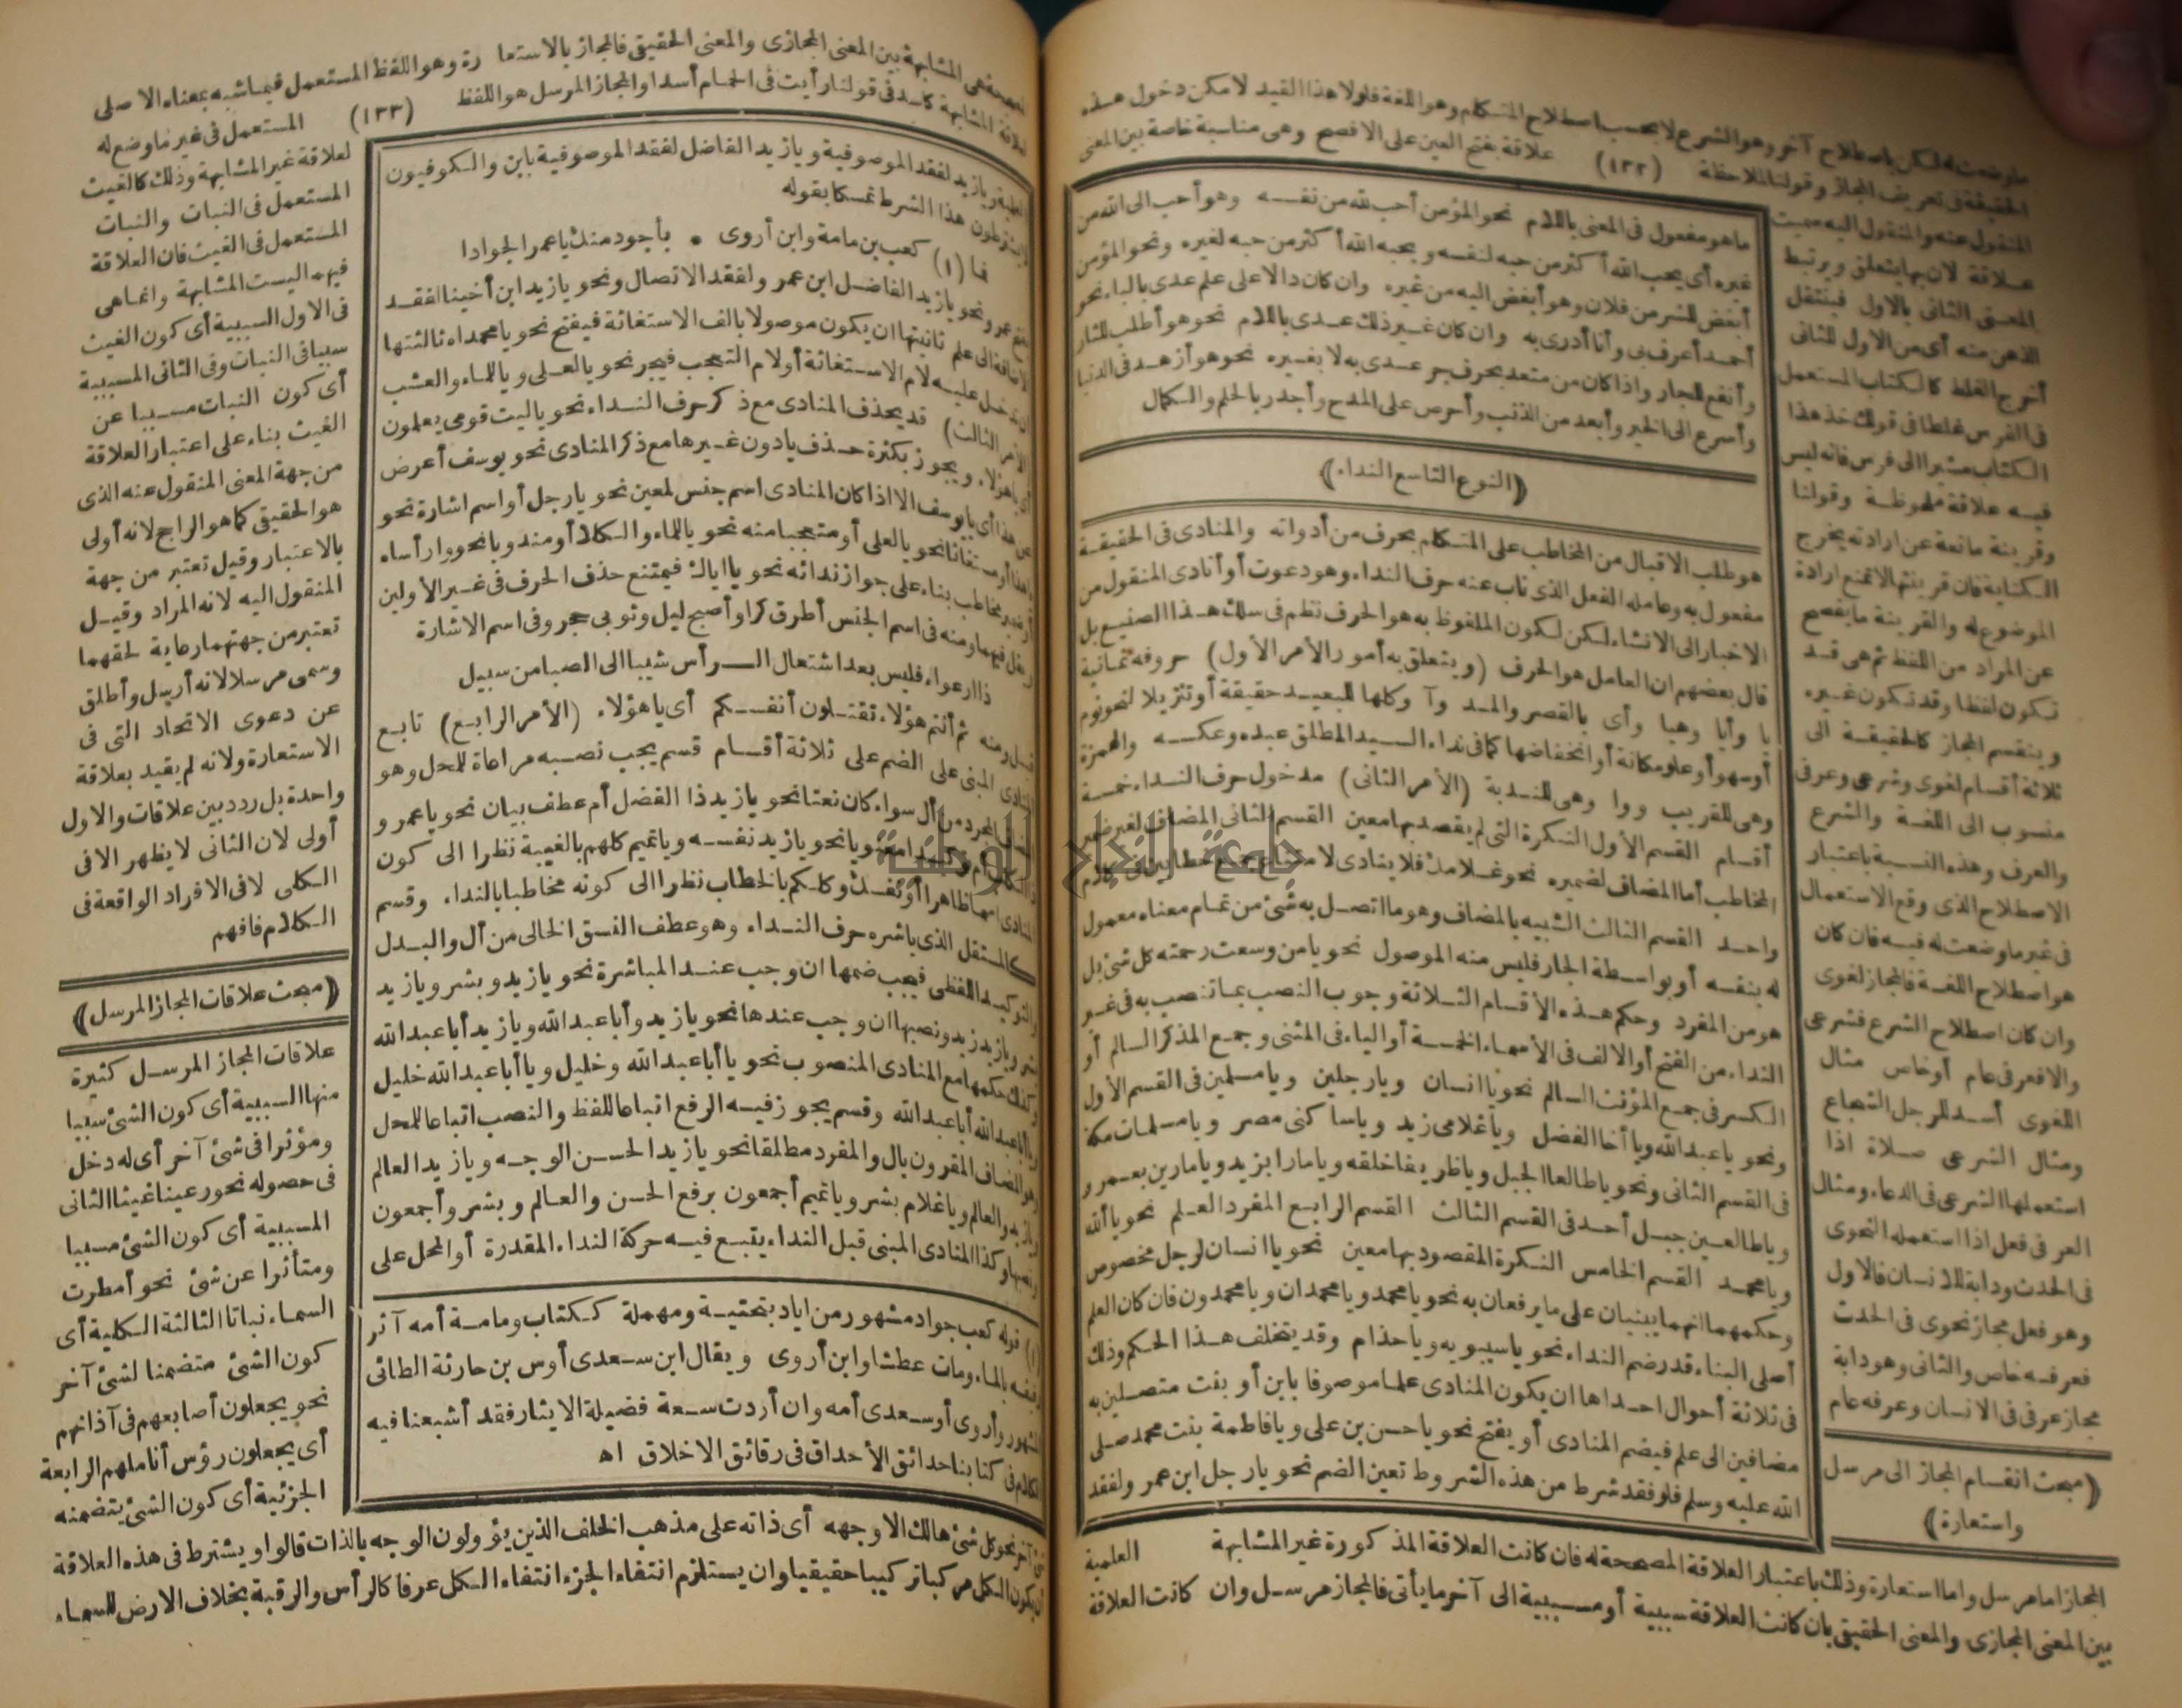 ما وضعت له لكن باصطلاح آخر وهو الشرع لا بحسب اصطلاح المتكلم وهو اللغة فلولا هذا القيد لا مكن دخول هذه
الحقيقة فى تعريف المجاز وقولنا لملاحظة (١٣٢) علاقة بفتح العين على الافصح وهى مناسبة خاصة بين المعنى
المنقول عنه والمنقول اليه سميت
علاقة لان بها يتعلق ويرتبط
المعنى الثانى بالاول فينتقل
الذهن منه أى من الاول للثانى
أخرج الغلط كالكتاب المستعمل
فى الفرس غلطا فى قولك خذ هذا
الكتاب مشيرا الى فرس فانه ليس
فيه علاقة ملحوظة وقولنا
وقرينة مانعة عن ارادته يخرج
الكناية فان قرينتها لا تمنع ارادة
الموضوع له والقرينة ما يفصح
عن المراد من اللفظ ثم هى قد
تكون لفظا وقد تكون غيره
وينقسم المجاز كالحقيقة الى
ثلاثة أقسام لغوى وشرعى وعرفى
منسوب الى اللغة والشرع
والعرف وهذه النسبة باعتبار
الاصطلاح الذى وقع الاستعمال
فى غير ما وضعت له فيه فان كان
هو اصطلاح اللغة فالمجاز لغوى
وان كان اصطلاح الشرع فشرعى
والا فعرفى عام أو خاص مثال
اللغوى أسد للرجل الشجاع
ومثال الشرعى صلاة اذا
استعملها الشرعى فى الدعاء ومثال
العرفى فعل اذا استعمله النحوى
فى الحدث ودابة للانسان فالاول
وهو فعل مجاز نحوى فى الحدث
فعرفه خاص والثانى وهو دابة
مجاز عرفى فى الانسان وعرفه عام
(مبحث انقسام المجاز الى مرسل
واستعارة)
ما هو مفعول فى المعنى باللام نحو المؤمن أحب لله من نفسه وهو أحب الى الله من
غيره أى يحب الله أكثر من حبه لنفسه ويحبه الله أكثر من حبه لغيره ونحو المؤمن
أبغض للشر من فلان وهو أبغض اليه من غيره وان كان دالا على علم عدى بالباء نحو
أحمد أعرف بى وأنا أدرى به وان كان غير ذلك عدى باللام نحو هو أطلب للثار
وأنفع للجار واذا كان من متعد بحرف جر عدى به لا بغيره نحو هو أزهد فى الدنيا
وأسرع الى الخير وأبعد من الذنب وأحرص على المدح وأجدر بالحلم والكمال
(النوع التاسع النداء)
هو طلب الاقبال من المخاطب على المتكلم بحرف من أدواته والمنادى فى الحقيقة
مفعول به وعامله الفعل الذى ناب عنه حرف النداء وهو دعوت أو أنادى المنقول من
الاخبار الى الانشاء لكن لكون الملفوظ به هو الحرف نظم فى سلك هذا الصنيع بل
قال بعضهم ان العامل هو الحرف (ويتعلق به أمور الأمر الأول) حروفه ثمانية
يا وأيا وهيا وأى بالقصر والمد وآ وكلها للبعيد حقيقة أو تنزيلا لنحو نوم
أو سهو أو علو مكانة أو انخفاضها كما فى نداء السيد المطلق عبده وعكسه والهمزة
وهى للقريب ووا وهى للندبة (الأمر الثانى) مدخول حرف النداء خمسة
أقسام القسم الأول النكرة التى لم يقصد بها معين القسم الثانى المضاف لغير ضمير
المخاطب أما المضاف لضميره نحو غلامك فلا ينادى لامتناع جمع خطابين فى كلام
واحد القسم الثالث الشبيه بالمضاف وهو ما اتصل به شئ من تمام معناه معمول
له بنفسه أو بواسطة الجار فليس منه الموصول نحو يا من وسعت رحمته كل شئ بل
هو من المفرد وحكم هذه الأقسام الثلاثة وجوب النصب بما تنصب به فى غير
النداء من الفتح أو الالف فى الأسماء الخمسة أو الياء فى المثنى وجمع المذكر السالم أو
الكسر فى جمع المؤنث السالم نحو يا انسان ويا رجلين ويا مسلمين فى القسم الأول
ونحو يا عبد الله ويا أخا الفضل ويا غلامى زيد ويا ساكنى مصر ويا مسلمات مكة
فى القسم الثانى ونحو يا طالعا الجبل ويا ظريفا خلقه ويا مارا بزيد ويا مارين بعمرو
ويا طالعين جبل أحد فى القسم الثالث القسم الرابع المفرد العلم نحو يا ألله
ويا محمد القسم الخامس النكرة المقصود بها معين نحو يا انسان لرجل مخصوص
وحكمهما انهما يبنيان على ما يرفعان به نحو يا محمد ويا محمدان ويا محمدون فان كان العلم
أصلى البناء قدر ضم النداء نحو يا سيبويه ويا حذام وقد يتخلف هذا الحكم وذلك
فى ثلاثة أحوال احداها ان يكون المنادى علما موصوفا بابن أو بنت متصلين به
مضافين الى علم فيضم المنادى أو يفتح نحو يا حسن بن على ويا فاطمة بنت محمد صلى
الله عليه وسلم فلو فقد شرط من هذه الشروط تعين الضم نحو يا رجل ابن عمر ولفقد
العلمية
المجاز اما مرسل واما استعارة وذلك باعتبار العلاقة المصححة له فان كانت العلاقة المذكورة غير المشابهة
بين المعنى المجازى والمعنى الحقيقى بان كانت العلاقة سببية أو مسببية الى آخر ما يأتى فالمجاز مرسل وان كانت العلاقة
المصححة هى المشابهة بين المعنى المجازى والمعنى الحقيقى فالمجاز بالاستعارة وهو اللفظ المستعمل فيما شبه بمعناه الاصلى
لعلاقة المشابهة كاسد فى قولنا رأيت فى الحمام أسدا والمجاز المرسل هو اللفظ (١٣٣) المستعمل فى غير ما وضع له
لعلاقة غير المشابهة وذلك كالغيث
المستعمل فى النبات والنبات
المستعمل فى الغيث فان العلاقة
فيهما ليست المشابهة وانما هى
فى الاول السببية أى كون الغيث
سببا فى النبات وفى الثانى المسببية
أى كون النبات مسببا عن
الغيث بناء على اعتبار العلاقة
من جهة المعنى المنقول عنه الذى
هو الحقيقى كما هو الراجح لانه أولى
بالاعتبار وقيل تعتبر من جهة
المنقول اليه لانه المراد وقيل
تعتبر من جهتهما رعاية لحقهما
وسمى مرسلا لانه أرسل وأطلق
عن دعوى الاتحاد التى فى
الاستعارة ولانه لم يقيد بعلاقة
واحدة بل ردد بين علاقات والاول
أولى لان الثانى لا يظهر الا فى
الكلى لا فى الافراد الواقعة فى
الكلام فافهم
(مبحث علاقات المجاز المرسل)
علاقات المجاز المرسل كثيرة
منها السببية أى كون الشئ سببا
ومؤثرا فى شئ آخر أى له دخل
فى حصوله نحو رعينا غيثا الثانى
المسببية أى كون الشئ مسببا
ومتأثرا عن شئ نحو أمطرت
السماء نباتا الثالثة الكلية أى
كون الشئ متضمنا لشئ آخر
نحو يجعلون أصابعهم فى آذانهم
أى يجعلون رؤس أناملهم الرابعة
الجزئية أى كون الشئ يتضمنه
العلمية ويا زيد لفقد الموصوفية ويا زيد الفاضل لفقد الموصوفية بابن والكوفيون
لا يشترطون هذا الشرط تمسكا بقوله
فما (١) كعب بن مامة وابن أروى • بأجود منك يا عمر الجوادا
بفتح عمر ونحو يا زيد الفاضل ابن عمر ولفقد الاتصال ونحو يا زيد ابن أخينا لفقد
الاضافة الى علم ثانيتها ان يكون موصولا بالف الاستغاثة فيفتح نحو يا محمداه ثالثتها
ان تدخل عليه لام الاستغاثة أو لام التعجب فيجر نحو يا لعلى ويا للماء والعشب
(الأمر الثالث) قد يحذف المنادى مع ذكر حرف النداء نحو يا ليت قومى يعلمون
أى يا هؤلاء ويجوز بكثرة حذف يا دون غيرها مع ذكر المنادى نحو يوسف أعرض
عن هذا أى يا يوسف الا اذا كان المنادى اسم جنس لمعين نحو يا رجل أو اسم اشارة نحو
يا هذا أو مستغاثا نحو يا لعلى أو متعجبا منه نحو يا للماء والكلا أو مندوبا نحو وا رأساه
أو ضمير مخاطب بناء على جواز ندائه نحو يا اياك فيمتنع حذف الحرف فى غير الأولين
ويقل فيهما ومنه فى اسم الجنس أطرق كرا وأصبح ليل وثوبى حجر وفى اسم الاشارة
ذا ارعواء فليس بعد اشتعال الرأس شيبا الى الصبا من سبيل
قيل ومنه ثم أنتم هؤلاء تقتلون أنفسكم أى يا هؤلاء (الأمر الرابع) تابع
المنادى المبنى على الضم على ثلاثة أقسام قسم يجب نصبه مراعاة للمحل وهو
المضاف المجرد من أل سواء كان نعتا نحو يا زيد ذا الفضل أم عطف بيان نحو يا عمرو
أبا الكرام أم توكيدا معنويا نحو يا زيد نفسه ويا تميم كلهم بالغيبة نظرا الى كون
المنادى اسما ظاهرا أو نفسك وكلكم بالخطاب نظرا الى كونه مخاطبا بالنداء وقسم
كالمستقل الذى باشره حرف النداء وهو عطف النسق الخالى من أل والبدل
والتوكيد اللفظى فيجب ضمها ان وجب عند المباشرة نحو يا زيد وبشر ويا زيد
بشر ويا زيد زيد ونصبها ان وجب عندها نحو يا زيد وأبا عبد الله ويا زيد أبا عبد الله
وكذلك حكمها مع المنادى المنصوب نحو يا أبا عبد الله وخليل ويا أبا عبد الله خليل
ويا أبا عبد الله أبا عبد الله وقسم يجوز فيه الرفع اتباعا للفظ والنصب اتباعا للمحل
وهو المضاف المقرون بال والمفرد مطلقا نحو يا زيد الحسن الوجه ويا زيد العالم
ويا زيد والعالم ويا غلام بشر ويا تميم أجمعون برفع الحسن والعالم وبشر وأجمعون
ونصبها وكذا المنادى المبنى قبل النداء يتبع فيه حركة النداء المقدرة أو المحل على
(١) قوله كعب جواد مشهور من اياد بتحتية ومهملة ككتاب ومامة أمه آثر
رفيقه بالماء ومات عطشا وابن أروى ويقال ابن سعدى أوس بن حارثة الطائى
المشهور وأروى أو سعدى أمه وان أردت سعة فضيلة الايثار فقد أشبعنا فيه
الكلام فى كتابنا حدائق الأحداق فى رقائق الاخلاق اه
شئ آخر نحو كل شئ هالك الا وجهه أى ذاته على مذهب الخلف الذين يؤولون الوجه بالذات قالوا ويشترط فى هذه العلاقة
أن يكون الكل مركبا تركيبا حقيقيا وان يستلزم انتفاء الجزء انتفاء الكل عرفا كالرأس والرقبة بخلاف الارض للسماء
جامعة النجاح الوطنية